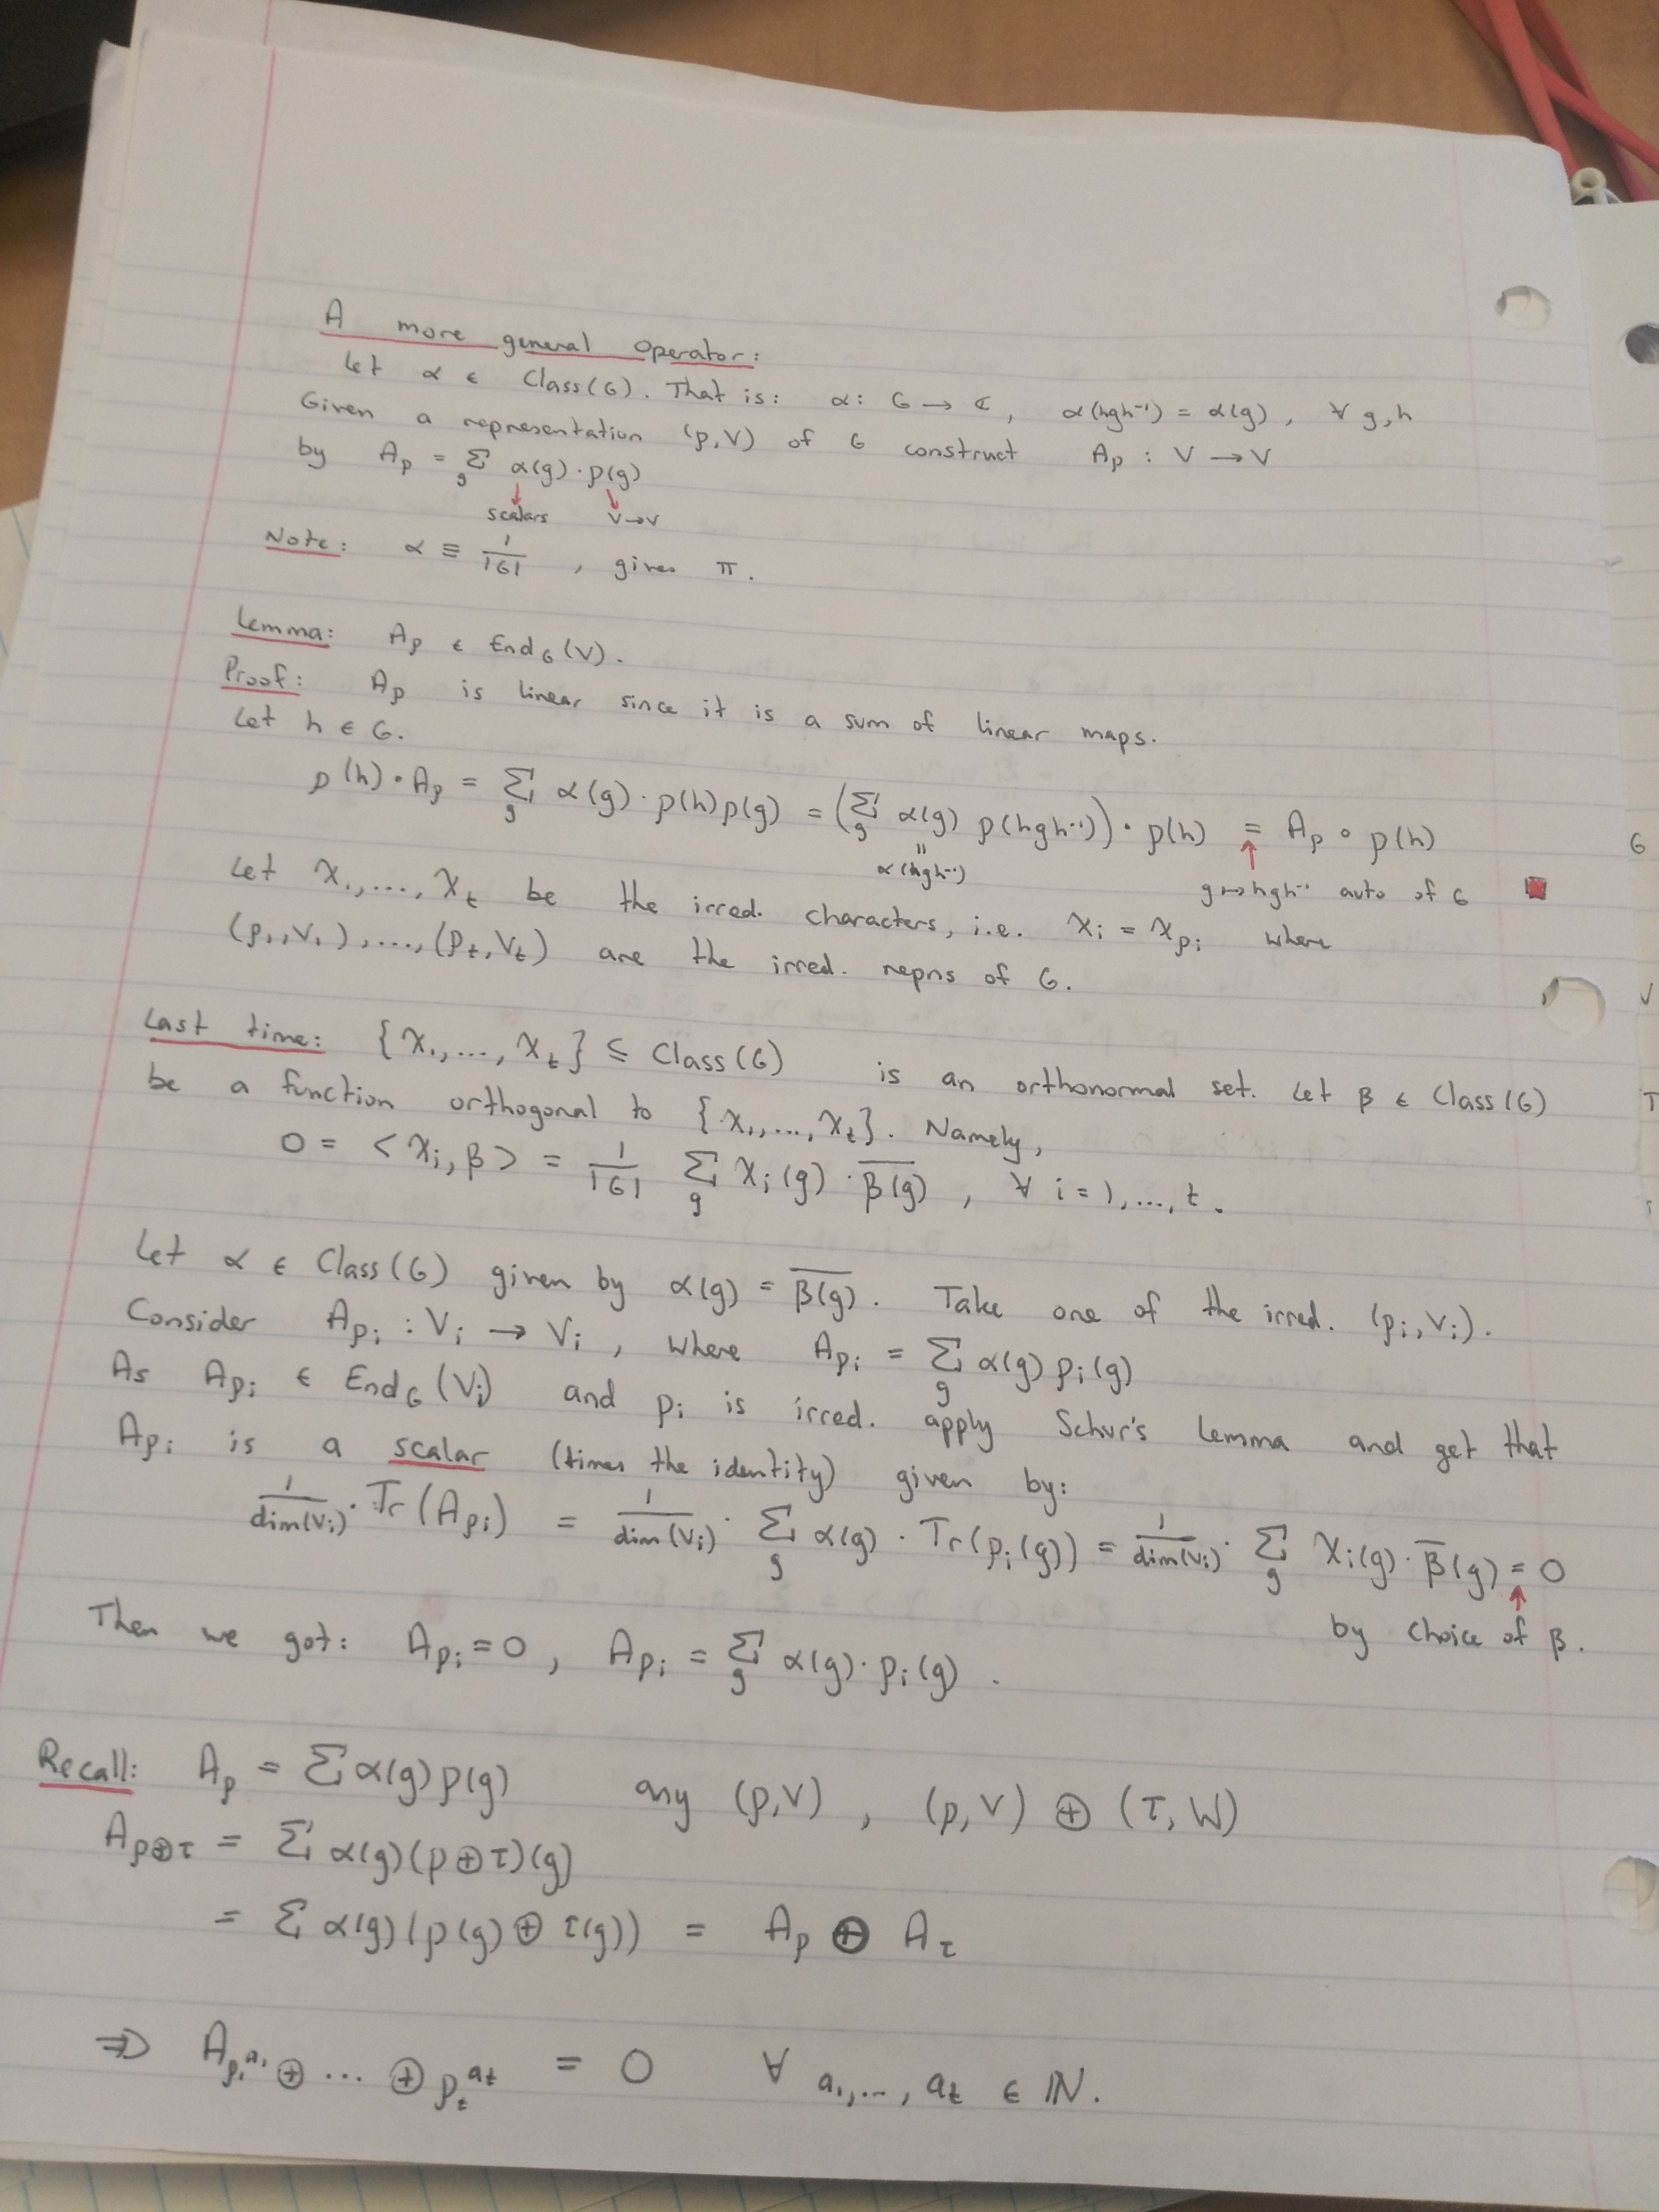 A more general operator:
Let α ∈ Class(G). That is: α: G → ℂ, α(hgh⁻¹) = α(g), ∀ g,h
Given a representation (ρ,V) of G construct Aρ : V → V
by Aρ = Σ_g α(g)·ρ(g)
scalars V→V
Note: α ≡ 1/|G| , gives π.
Lemma: Aρ ∈ End_G(V).
Proof: Aρ is linear since it is a sum of linear maps.
Let h ∈ G.
ρ(h)∘Aρ = Σ_g α(g)·ρ(h)ρ(g) = (Σ_g α(g) ρ(hgh⁻¹))∘ρ(h) = Aρ ∘ ρ(h)
" α(hgh⁻¹) ↑ g↦hgh⁻¹ auto of G
Let χ₁,...,χ_t be the irred. characters, i.e. χ_i = χ_{ρ_i} where
(ρ₁,V₁),...,(ρ_t,V_t) are the irred. repns of G.
Last time: {χ₁,...,χ_t} ⊆ Class(G) is an orthonormal set. Let β ∈ Class(G)
be a function orthogonal to {χ₁,...,χ_t}. Namely,
0 = <χ_i,β> = 1/|G| Σ_g χ_i(g)·\overline{β(g)} , ∀ i=1,...,t.
Let α ∈ Class(G) given by α(g) = \overline{β(g)}. Take one of the irred. (ρ_i,V_i).
Consider A_{ρ_i} : V_i → V_i , where A_{ρ_i} = Σ_g α(g)ρ_i(g)
As A_{ρ_i} ∈ End_G(V_i) and ρ_i is irred. apply Schur's Lemma and get that
A_{ρ_i} is a scalar (times the identity) given by:
1/dim(V_i)·Tr(A_{ρ_i}) = 1/dim(V_i)·Σ_g α(g)·Tr(ρ_i(g)) = 1/dim(V_i)·Σ_g χ_i(g)·\overline{β}(g) = 0
↑ by choice of β.
Then we got: A_{ρ_i}=0, A_{ρ_i} = Σ_g α(g)·ρ_i(g).
Recall: Aρ = Σ α(g)ρ(g) any (ρ,V) , (ρ,V) ⊕ (τ,W)
A_{ρ⊕τ} = Σ α(g)(ρ⊕τ)(g)
= Σ α(g)(ρ(g) ⊕ τ(g)) = Aρ ⊕ A_τ
⇒ A_{ρ₁^{a₁} ⊕ ... ⊕ ρ_t^{a_t}} = 0 ∀ a₁,...,a_t ∈ ℕ.